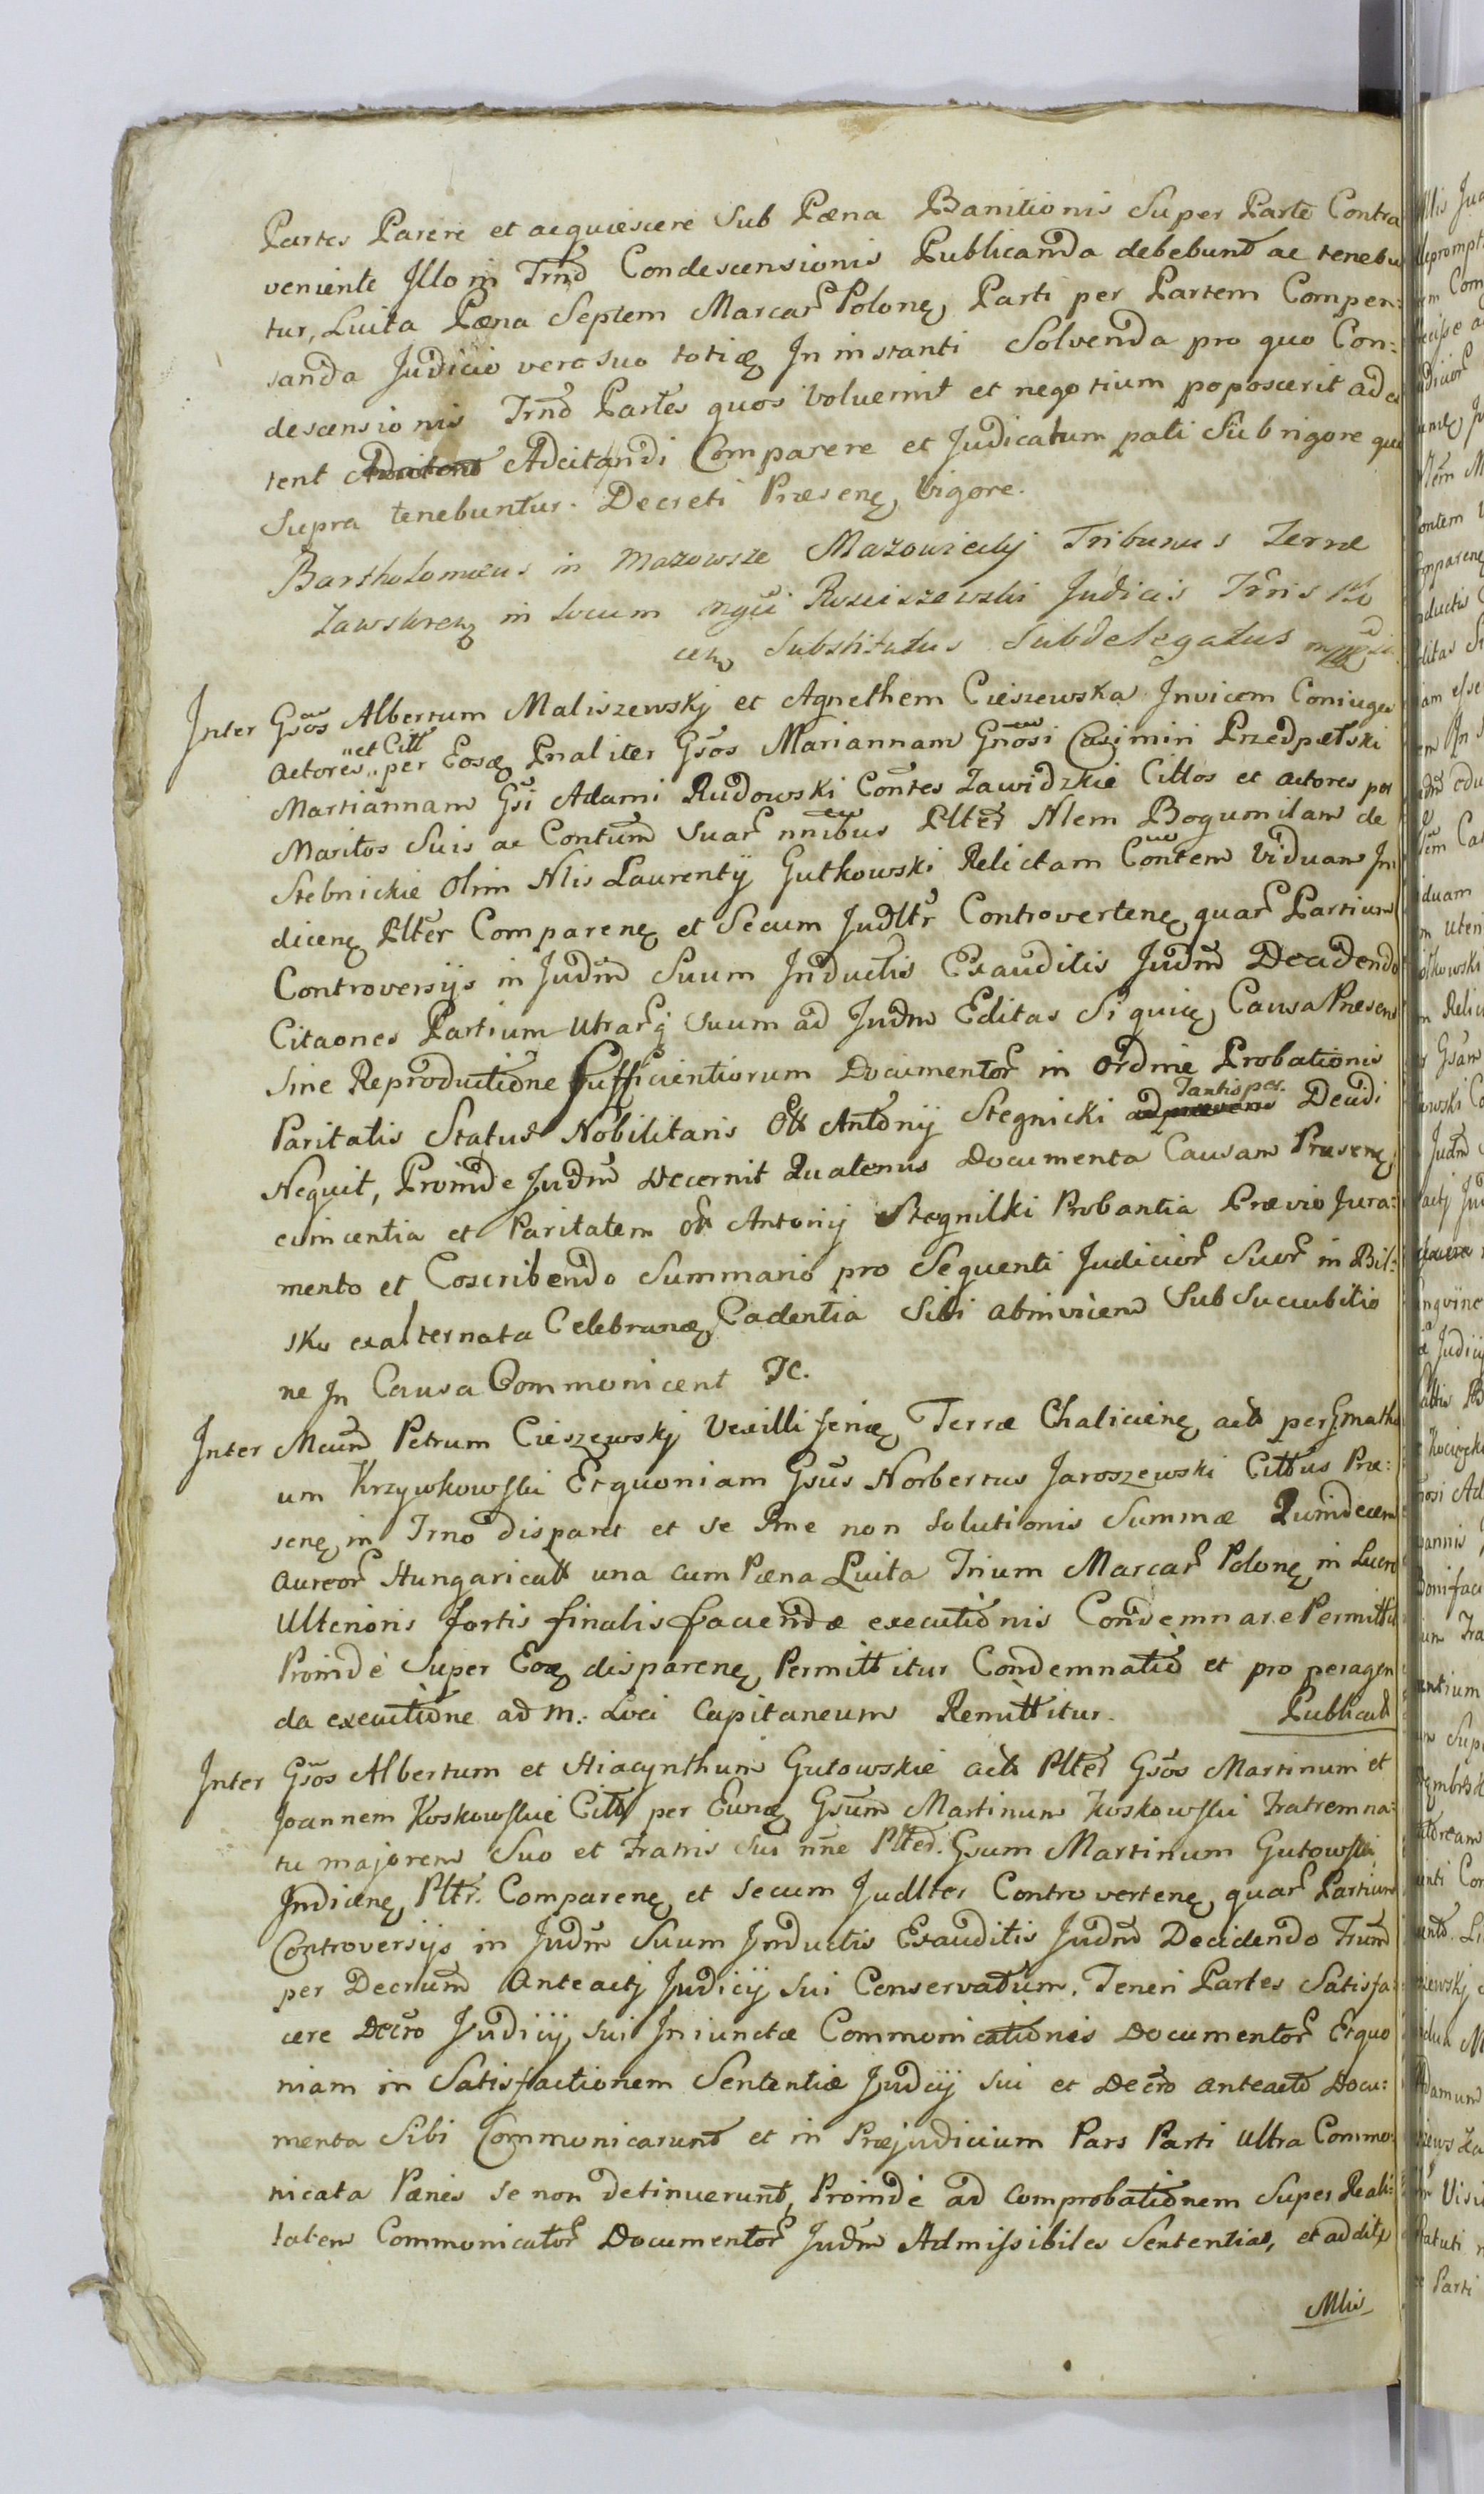 Partes Parere et acquiescere Sub Pæna Banitionis Super Parte Contra
veniente Illo in Trnd Condescensionis Publicanda debebunt ac tenebu
tur, Luita Pæna Septem Marcar Polonę, Parti per Partem Compen:
sanda Judicio vero suo totiæ In instanti Solvenda pro quo Con:
descensionis Trnd Partes quos voluerint et negotium poposcerit adci
tent Adcitandi Comparere et Judicatum pati Sub rigore quo
Supra tenebuntur. Decreti Præsenę Vigore.
Bartholomæus in Mazowsze Mazowiecky Tribunus Terræ
Zawskrenę in Locum Mgci Rosciszewski Judicis Trris
cenę Substitutus Subdelegatus
Inter Gsos Albertum Maliszewskj et Agnethem Cieszewska Invicem Coniuges
Actores et Citt per Eosq Pnaliter Gsos Mariannam Gnosi Casimiri Przedpełski
Martiannam Gsi Adami Rudowski Contes Zawidzkie Cittos et actores per
Maritos Suis ac Contum Suar nnibus Plter Nlem Bogumilam de
Stebnickie Olim Nlis Laurentÿ Gutkowski Relictam Contem Viduam In
dicenę Plter Comparenę et Secum Judltr Controvertenę quar Partium
Controversijs in Judm Suum Inductis Exauditis Judm Decidendo
Citaones Partium Utrarq Suum ad Judm Editas Siquię, Causa Præsens
Sine Reproductione Sufficientiorum Documentor in ordine Probationis
Paritatis Status Nobilitaris Ott Antonij Stegnicki Tantisper Decidi
Nequit, Proinde Judm Decernit Quatenus Documenta Causam Præsenę
evincentia et Paritatem ott Antonij Stegnilki Probantia Prævio Jura:
mento et Coscribendo Summario pro Sequenti Judicior Suor in Bil:
sko exalternata Celebranę, Cadentia Sibi abinvicem Sub Succubitio
ne In Causa Commonicent Tc.
Inter Mcum Petrum Cieszewskj Vexilliferię Terræ Chalicienę actt per Gmathe
um Krzywkowski Et quoniam Gsus Norbertus Jaroszewski Cittus Præ:
senę in Trno disparet et se Pme non Solutionis Summæ Quindecem
Aureor Hungaricatt una cum Pæna Luita Trium Marcar Polonę in Lucro
Ulterioris fortis finalis faciendæ executionis Condemnare Permittit
Proinde Super Eoq disparenę Permittitur Condemnatio et pro peragen
da executione ad M. Loci Capitaneum Remittitur. Publicatt
Inter Gsos Albertum et Hiacynthum Gutowskie actt Plter Gsos Martinum et
Joannem Koskowskie Citt per Eunq Gsum Martinum Koskowski Fratrem na:
tu majorem Suo et Fratris Sui nne Plted. Gsum Martinum Gutowski
Indicenę Pltr. Comparenę et Secum Judlter Controvertenę quar Partium
Controversijs in Judm Suum Inductis Exauditis Judm Decidendo Trum
per Decrum Anteactj Judicij Sui Conservatum, Teneri Partes Satisfa:
cere Decro Judicij Sui Iniunctæ Commonicationis Documentor Et quo
niam in Satisfactionem Sententiæ Judcij Sui et Decro anteacto Docu:
menta Sibi Commonicarunt et in Præjudicium Pars Parti Ultra Commo:
nicata Pænes Se non Detinuerunt, Proinde ad Comprobationem Super Reali:
tatem Commonicator Documentor Judm Admissibiles Sententiat, et addito
Mlis